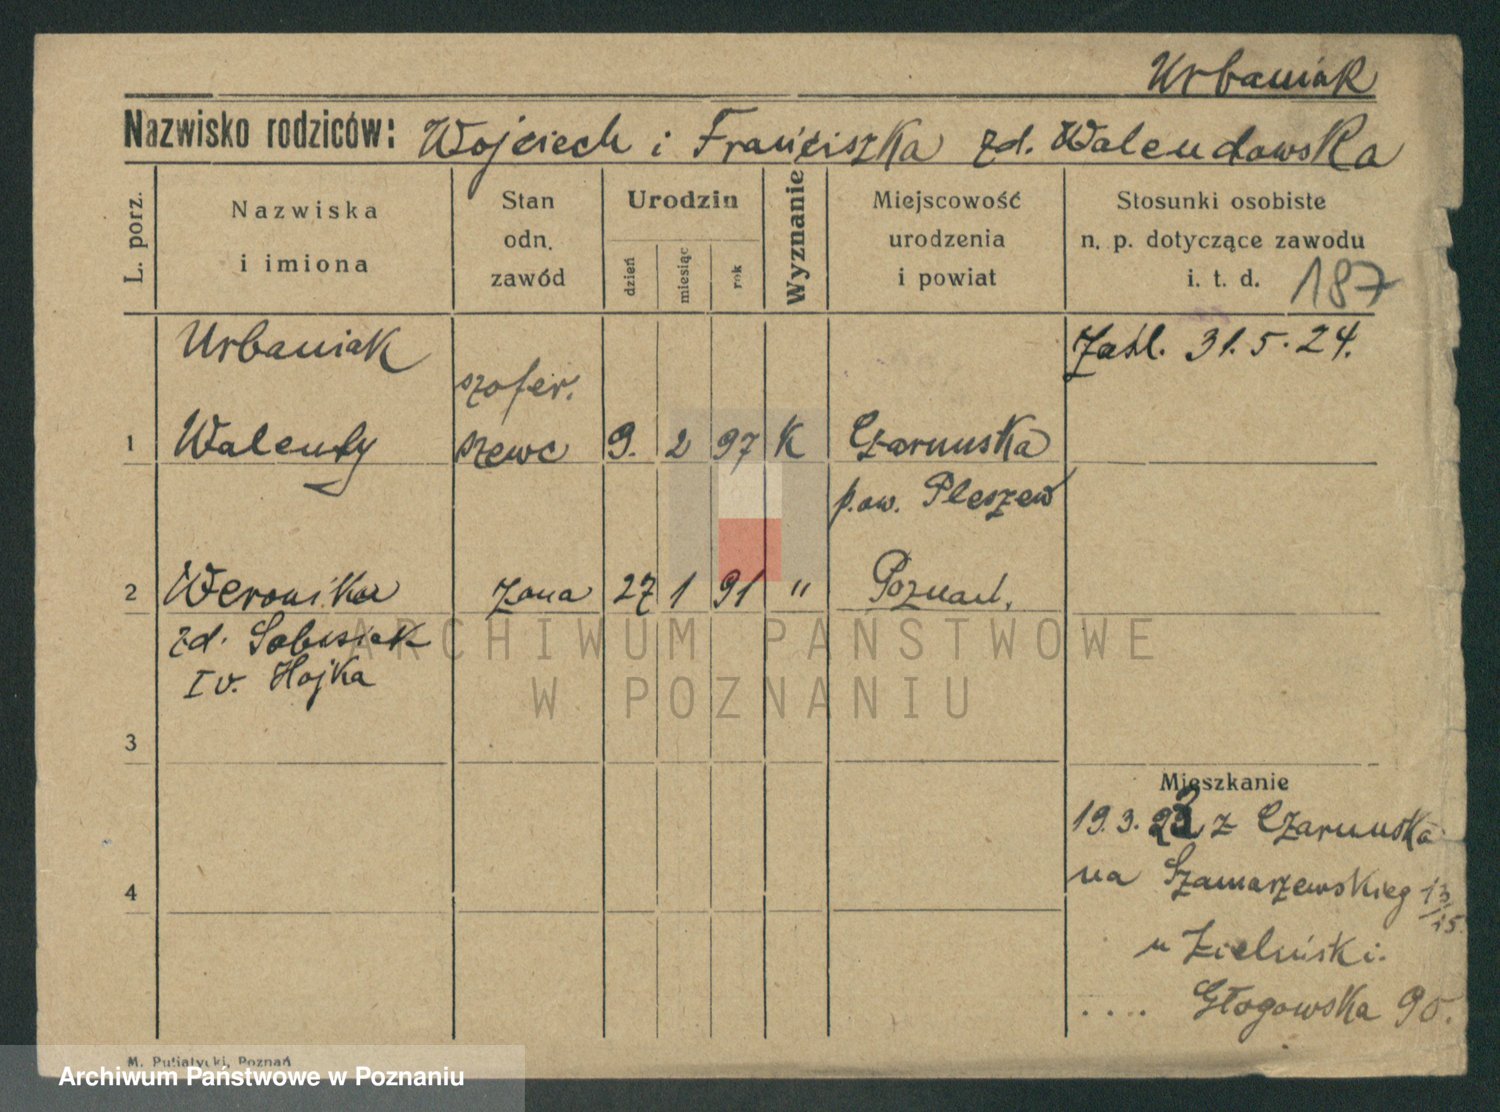 Urbaniak
Nazwisko rodziców: Wojciech i Franciszka zd. Walendowska
L. porz.
Nazwiska
i imiona
Stan
odn.
zawód
Urodzin
dzień
miesiąc
rok
Wyznanie
Miejscowość
urodzenia
i powiat
Stosunki osobiste
n. p. dotyczące zawodu
i. t. d.
187
Urbaniak
szofer.
Zaśl. 31.5.24.
1 Walenty szewc 9. 2 97 K Czarnuszka
pow. Pleszew
2 Weronika żona 27 1 91 " Poznań.
zd. Sobusiak
I v. Hojka
3
4
Mieszkanie
19.3. z Czarnuszka
na Szamarzewskieg 13/15.
u Zieliński.
.... Głogowska 90.
M. Putiatycki, Poznań
ARCHIWUM PAŃSTWOWE
W POZNANIU
Archiwum Państwowe w Poznaniu